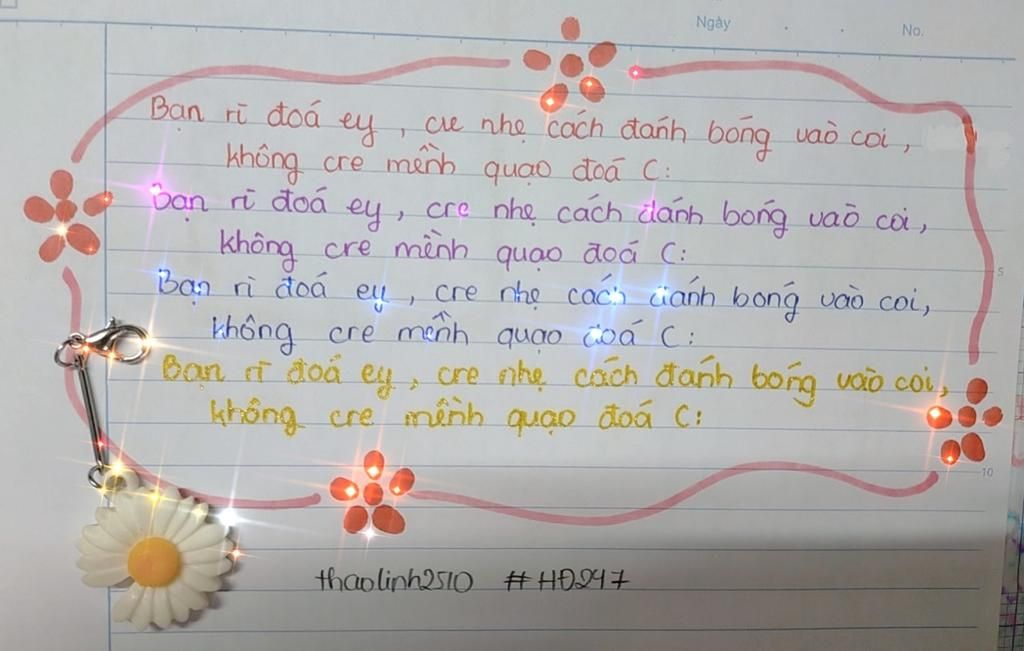 Ngày
No.
Bạn rì đoá ey, cre nhẹ cách đánh bóng vaò coi,
không cre mềnh quạo đoá C:
Bạn rì đoá ey, cre nhẹ cách đánh bóng vaò coi,
không cre mềnh quạo đoá C:
5
Bạn rì đoá ey, cre nhẹ cách đánh bóng vaò coi,
không cre mềnh quạo đoá C:
Bạn rì đoá ey, cre nhẹ cách đánh bóng vaò coi,
không cre mềnh quạo đoá C:
10
thaolinh2510 #HĐ247